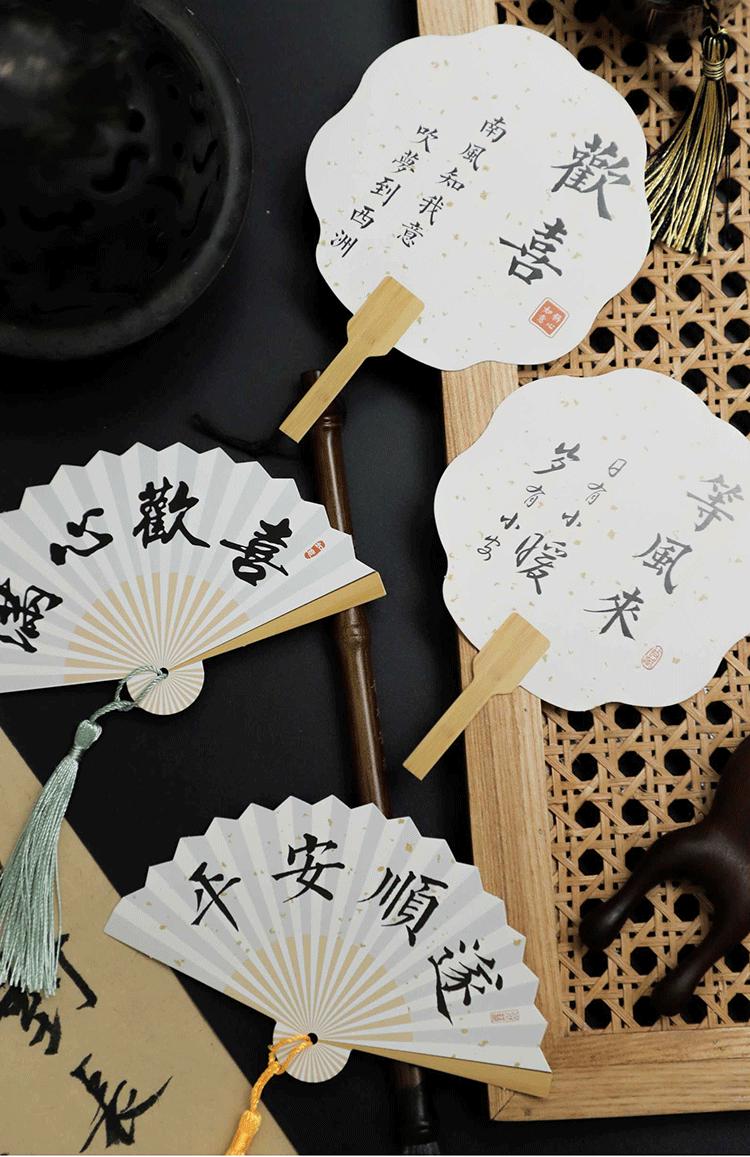 歡喜
南風知我意
吹夢到西洲
等風來
日有小暖
岁有小安
心歡喜
平安順遂